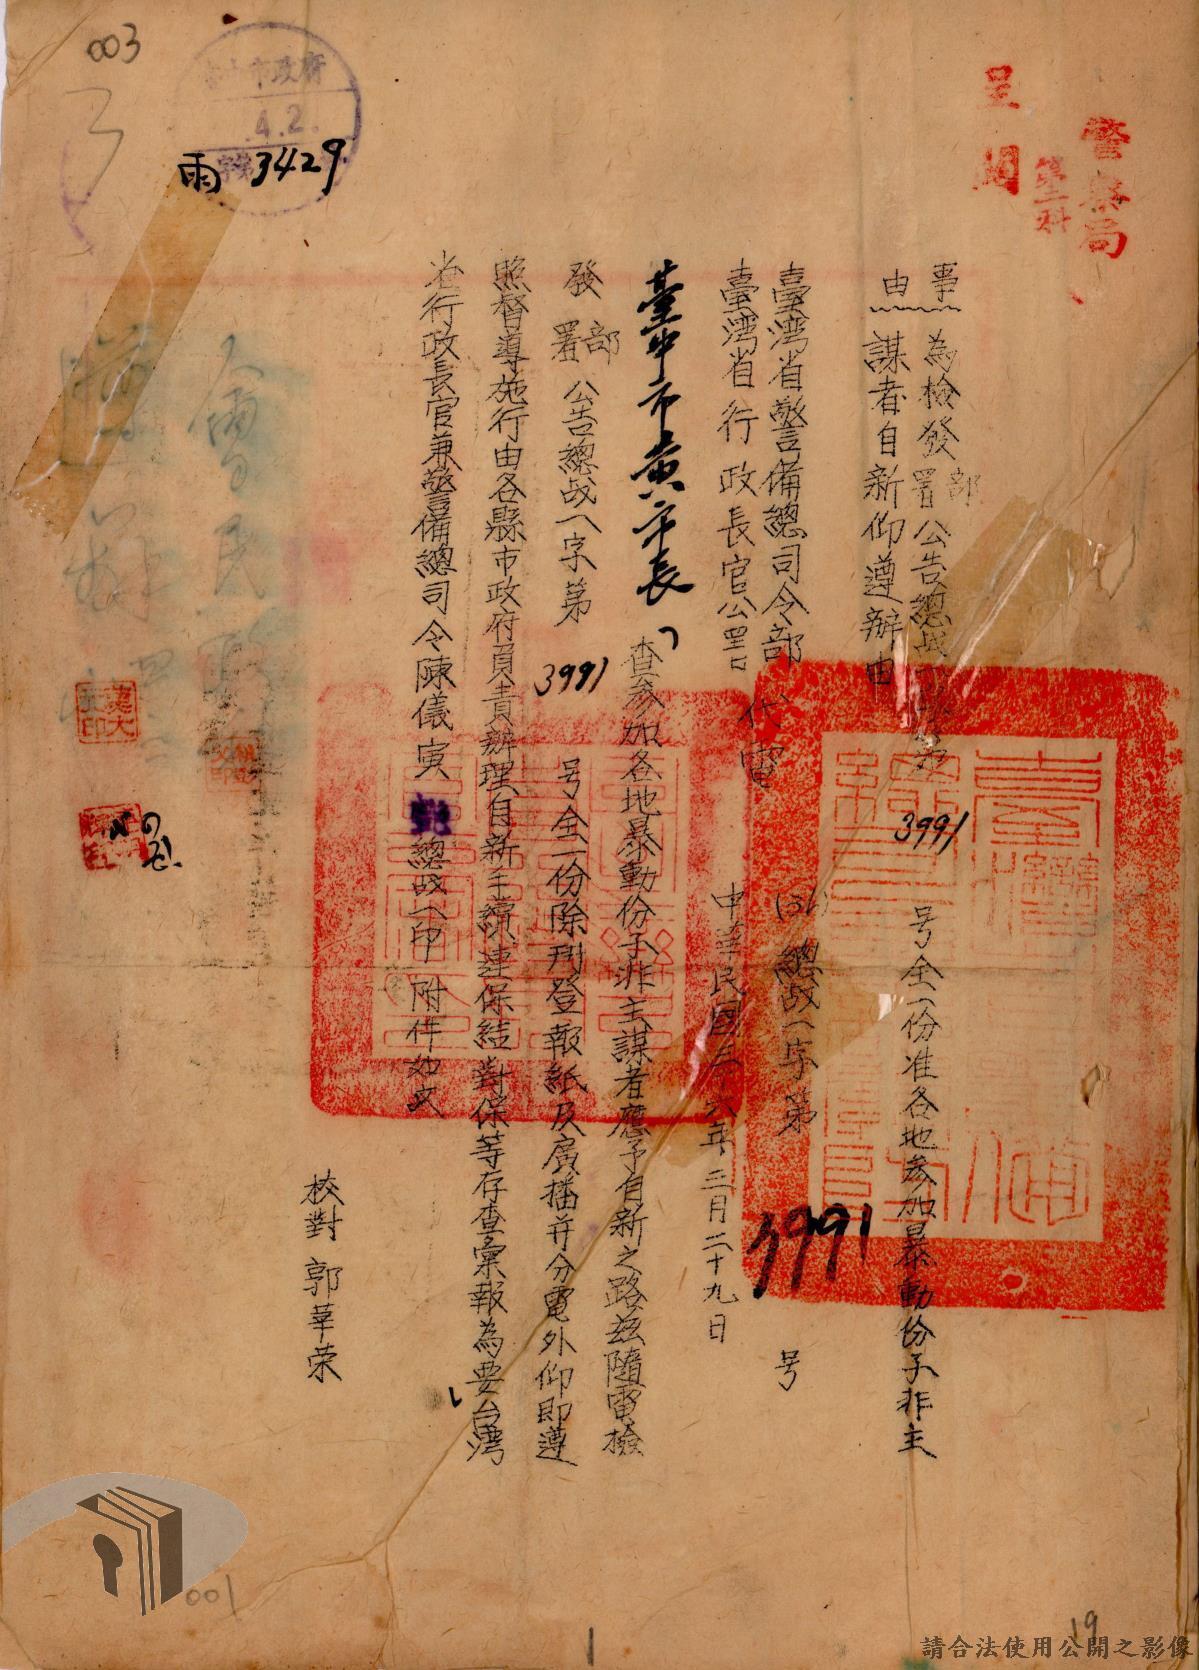 003
市政府
4.2.
雨 3429
警察局
第二科
呈閱
事由
為檢發部署公告總战一字第 3991 号全一份准各地参加暴動份子非主
謀者自新仰遵辦由
臺湾省警備總司令部
臺湾省行政長官公署 代電
(36)總战一字第 3991 号
中華民國三十六年三月二十九日
臺中市黄市長
查参加各地暴動份子非主謀者應予自新之路兹隨電檢
發部署公告總战一字第 3991 号全一份除刊登報紙及廣播并分電外仰即遵
照督導施行由各縣市政府負責辦理自新手續連保結對保等存查彙報為要台湾
省行政長官兼警備總司令陳儀寅 總战一印 附件如文
校對 郭莘荣
001
19
1
請合法使用公開之影像